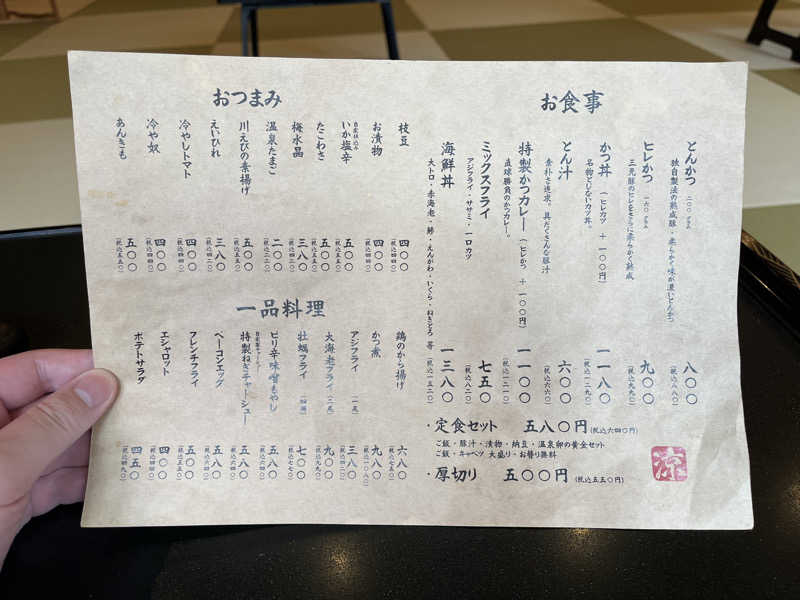 お食事
とんかつ 二〇〇グラム 八〇〇
独自製法の熟成豚・柔らかく味が濃いとんかつ (税込八八〇)
ヒレかつ 一六〇グラム 九〇〇
三元豚のヒレをさらに柔らかく熟成 (税込九九〇)
かつ丼 (ヒレカツ + 一〇〇円) 一一八〇
名物とじないカツ丼。 (税込一二九〇)
とん汁 六〇〇
素朴さ追求。具だくさんな豚汁 (税込六六〇)
特製かつカレー (ヒレかつ + 一〇〇円) 一一〇〇
直球勝負のかつカレー。 (税込一二一〇)
ミックスフライ 七五〇
アジフライ・ササミ・一口カツ (税込八二〇)
海鮮丼 一三八〇
大トロ・赤海老・鯵・えんがわ・いくら・ねぎとろ 等 (税込一五二〇)
・定食セット 五八〇円 (税込六四〇円)
ご飯・豚汁・漬物・納豆・温泉卵の黄金セット
ご飯・キャベツ 大盛り・お替り無料
・厚切り 五〇〇円 (税込五五〇円)
おつまみ
枝豆 四〇〇 (税込四四〇)
お漬物 四〇〇 (税込四四〇)
自家仕込み いか塩辛 五〇〇 (税込五五〇)
たこわさ 五〇〇 (税込五五〇)
梅水晶 三八〇 (税込四二〇)
温泉たまご 二〇〇 (税込二二〇)
川えびの素揚げ 五〇〇 (税込五五〇)
えいひれ 三八〇 (税込四二〇)
冷やしトマト 四〇〇 (税込四四〇)
冷や奴 四〇〇 (税込四四〇)
あんきも 五〇〇 (税込五五〇)
一品料理
鶏のから揚げ 六八〇 (税込七五〇)
かつ煮 九八〇 (税込一〇八〇)
アジフライ (一尾) 三八〇 (税込四二〇)
大海老フライ (二尾) 九〇〇 (税込九九〇)
牡蠣フライ (四個) 七〇〇 (税込七七〇)
ピリ辛味噌もやし 五八〇 (税込六四〇)
自家製チャーシュー 特製ねぎチャーシュー 五八〇 (税込六四〇)
ベーコンエッグ 五八〇 (税込六四〇)
フレンチフライ 五〇〇 (税込五五〇)
エシャロット 四〇〇 (税込四四〇)
ポテトサラダ 四五〇 (税込四九〇)